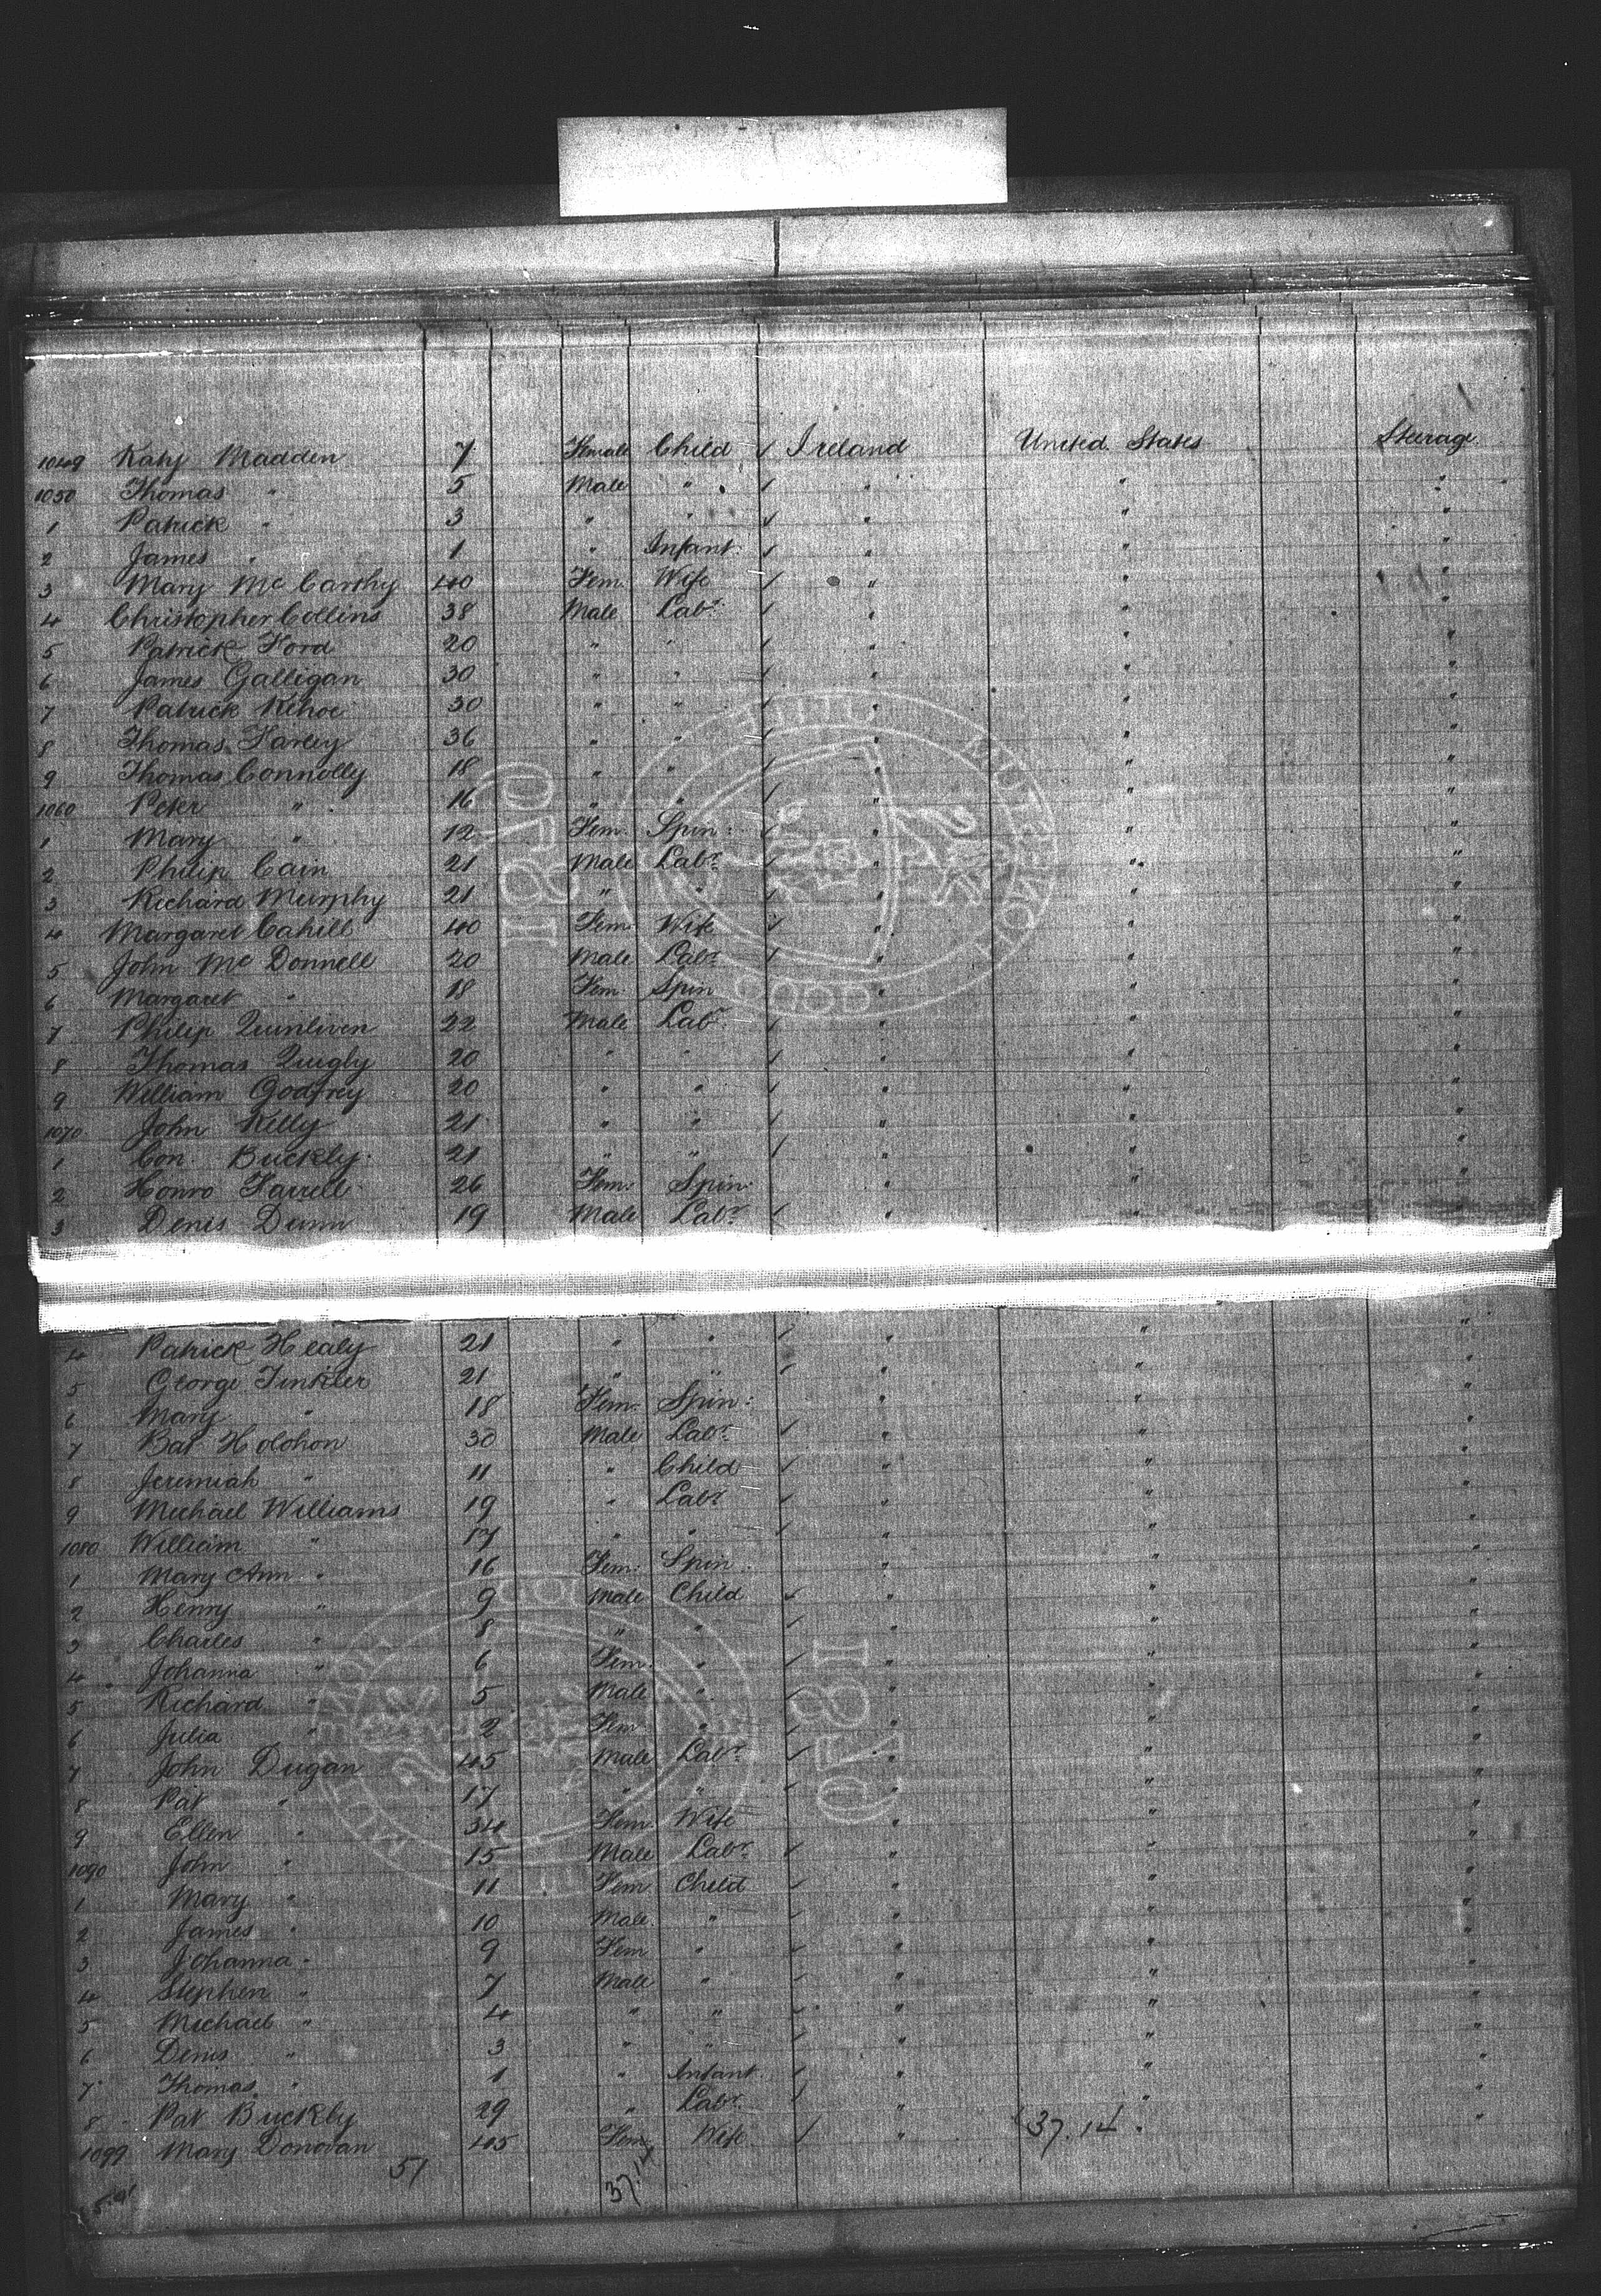 1049 Katy Madden 7 Female Child ✓ Ireland United States Steerage
1050 Thomas " 5 Male " ✓ " " "
1 Patrick " 3 " " ✓ " " "
2 James " 1 " Infant ✓ " " "
3 Mary Mc Carthy 40 Fem. Wife ✓ " " "
4 Christopher Collins 38 Male Labr ✓ " " "
5 Patrick Ford 20 " " ✓ " " "
6 James Galligan 30 " " ✓ " " "
7 Patrick Kehoe 30 " " ✓ " " "
8 Thomas Farley 36 " " ✓ " " "
9 Thomas Connolly 18 " " ✓ " " "
1060 Peter " 16 " " ✓ " " "
1 Mary " 12 Fem. Spin: ✓ " " "
2 Philip Cain 21 Male Labr ✓ " " "
3 Richard Murphy 21 " " ✓ " " "
4 Margaret Cahill 40 Fem. Wife ✓ " " "
5 John Mc Donnell 20 Male Labr ✓ " " "
6 Margaret " 18 Fem. Spin " " "
7 Philip Quinliven 22 Male Labr ✓ " " "
8 Thomas Quigly 20 " " ✓ " " "
9 William Godfrey 20 " " ✓ " " "
1070 John Kelly 21 " " ✓ " " "
1 Con. Buckly 21 " " ✓ " " "
2 Honro Farrell 26 Fem: Spin: " " "
3 Denis Dunn 19 Male Labr ✓ " " "
4 Patrick Healy 21 " " ✓ " " "
5 George Tinkler 21 " " ✓ " " "
6 Mary " 18 Fem. Spin: " " "
7 Bat Holohon 30 Male Labr ✓ " " "
8 Jeremiah " 11 " Child ✓ " " "
9 Michael Williams 19 " Labr ✓ " " "
1080 William " 17 " " ✓ " " "
1 Mary Ann " 16 Fem: Spin " " "
2 Henry " 9 Male Child ✓ " " "
3 Charles " 8 " " ✓ " " "
4 Johanna " 6 Fem. " ✓ " " "
5 Richard " 5 Male " ✓ " " "
6 Julia " 2 Fem " ✓ " " "
7 John Dugan 45 Male Labr ✓ " " "
8 Pat " 17 " " ✓ " " "
9 Ellen " 34 Fem. Wife " " "
1090 John " 15 Male Labr ✓ " " "
1 Mary " 11 Fem. Child ✓ " " "
2 James " 10 Male. " ✓ " " "
3 Johanna " 9 Fem " ✓ " " "
4 Stephen " 7 Male " ✓ " " "
5 Michael " 4 " " ✓ " " "
6 Denis " 3 " " ✓ " " "
7 Thomas " 1 " Infant ✓ " " "
8 Pat Buckly 29 " Labr ✓ " " "
1099 Mary Donovan 45 Fem Wife ✓ " 37.14 " "
51 37.14
1870
1870